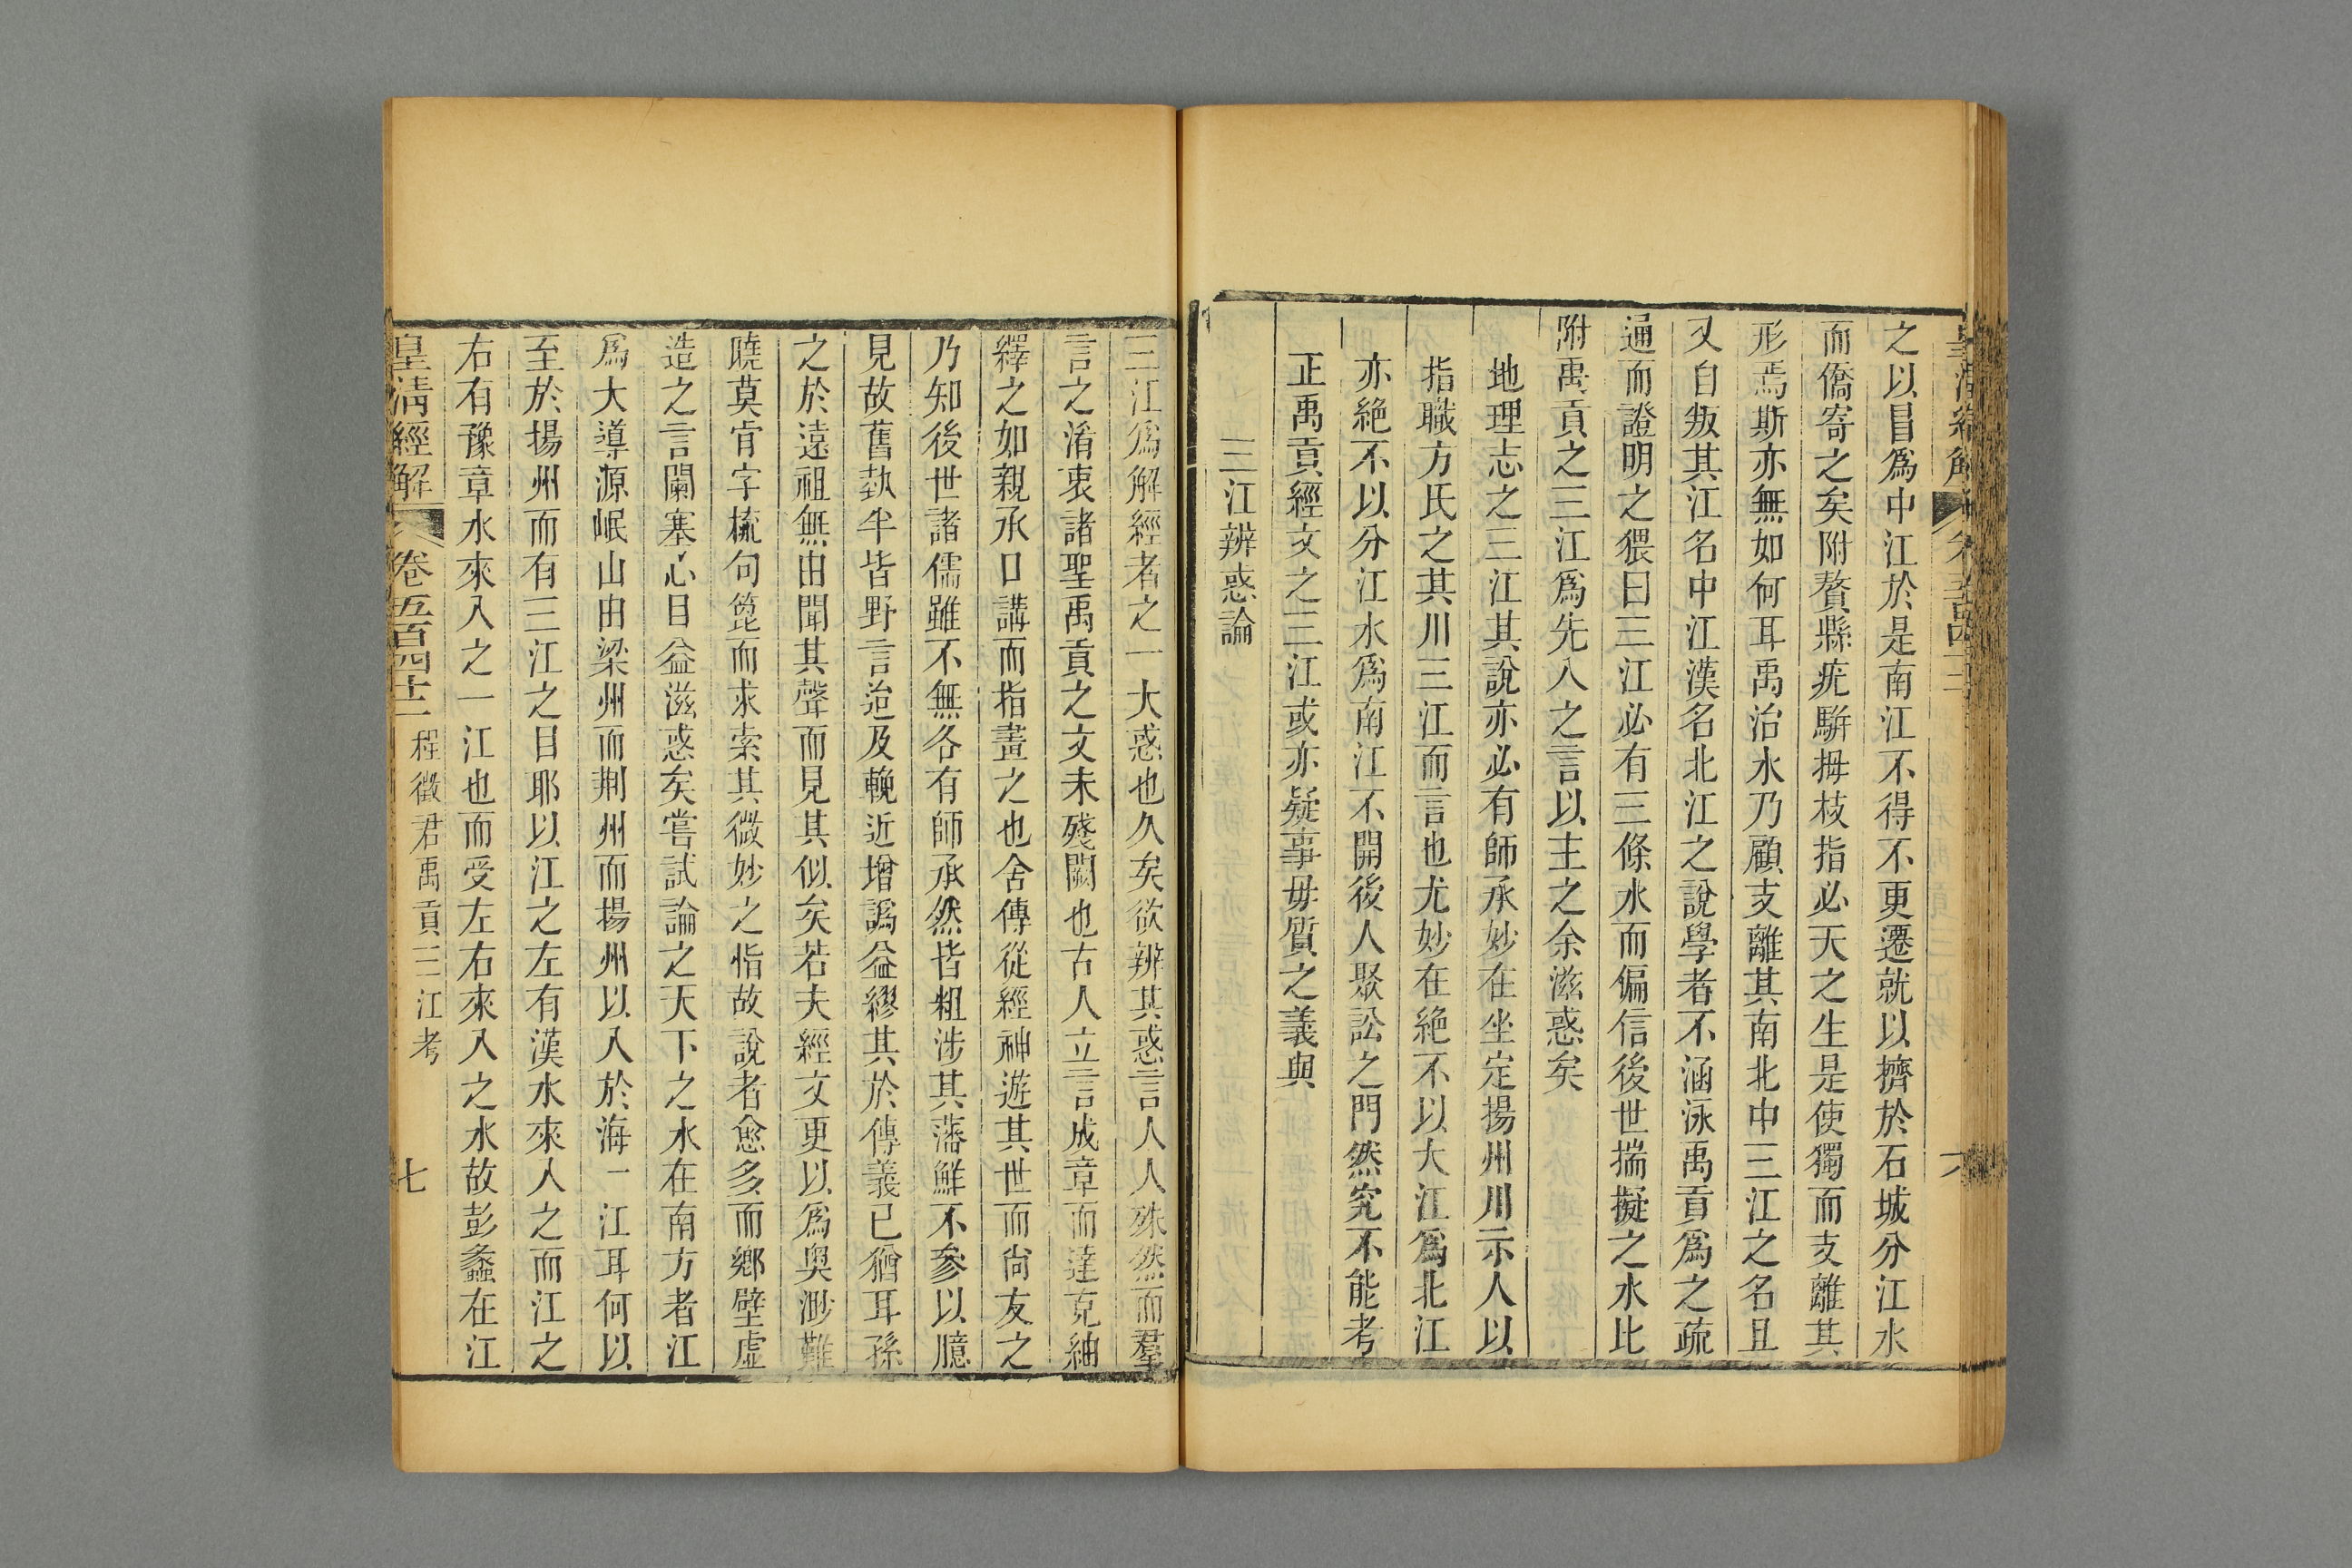 之以昌爲中江於是南江不得不更遷就以擠於石城分江水
而僑寄之矣附贅縣疣駢拇枝指必天之生是使獨而支離其
形焉斯亦無如何耳禹治水乃顧支離其南北中三江之名且
又自叛其江名中江漢名北江之說學者不涵泳禹貢爲之疏
通而證明之猥曰三江必有三條水而偏信後世揣擬之水比
附禹貢之三江爲先入之言以主之余滋惑矣
地理志之三江其說亦必有師承妙在坐定揚州川示人以
指職方氏之其川三江而言也尤妙在絶不以大江爲北江
亦絶不以分江水爲南江不開後人聚訟之門然究不能考
正禹貢經文之三江或亦疑事毋質之義與
三江辨惑論
三江爲解經者之一大惑也久矣欲辨其惑言人人殊然而羣
言之淆衷諸聖禹貢之文未殘闕也古人立言成章而達克紬
繹之如親承口講而指畫之也舍傳從經神遊其世而尙友之
乃知後世諸儒雖不無各有師承然皆粗涉其藩鮮不參以臆
見故舊埶半皆野言迨及輓近增譌益繆其於傳義已猶耳孫
之於遠祖無由聞其聲而見其似矣若夫經文更以爲奧渺難
曉莫肯字梳句篦而求索其微妙之恉故說者愈多而鄉壁虛
造之言闌塞心目益滋惑矣嘗試論之天下之水在南方者江
爲大導源岷山由梁州而荆州而揚州以入於海一江耳何以
至於揚州而有三江之目耶以江之左有漢水來入之而江之
右有豫章水來入之一江也而受左右來入之水故彭蠡在江
皇淸經解 卷五百四十二 程徵君禹貢三江考 七